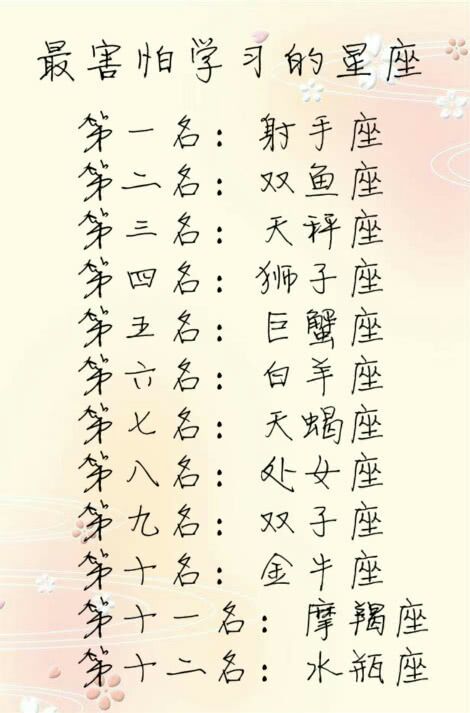 最害怕学习的星座
第一名：射手座
第二名：双鱼座
第三名：天秤座
第四名：狮子座
第五名：巨蟹座
第六名：白羊座
第七名：天蝎座
第八名：处女座
第九名：双子座
第十名：金牛座
第十一名：摩羯座
第十二名：水瓶座